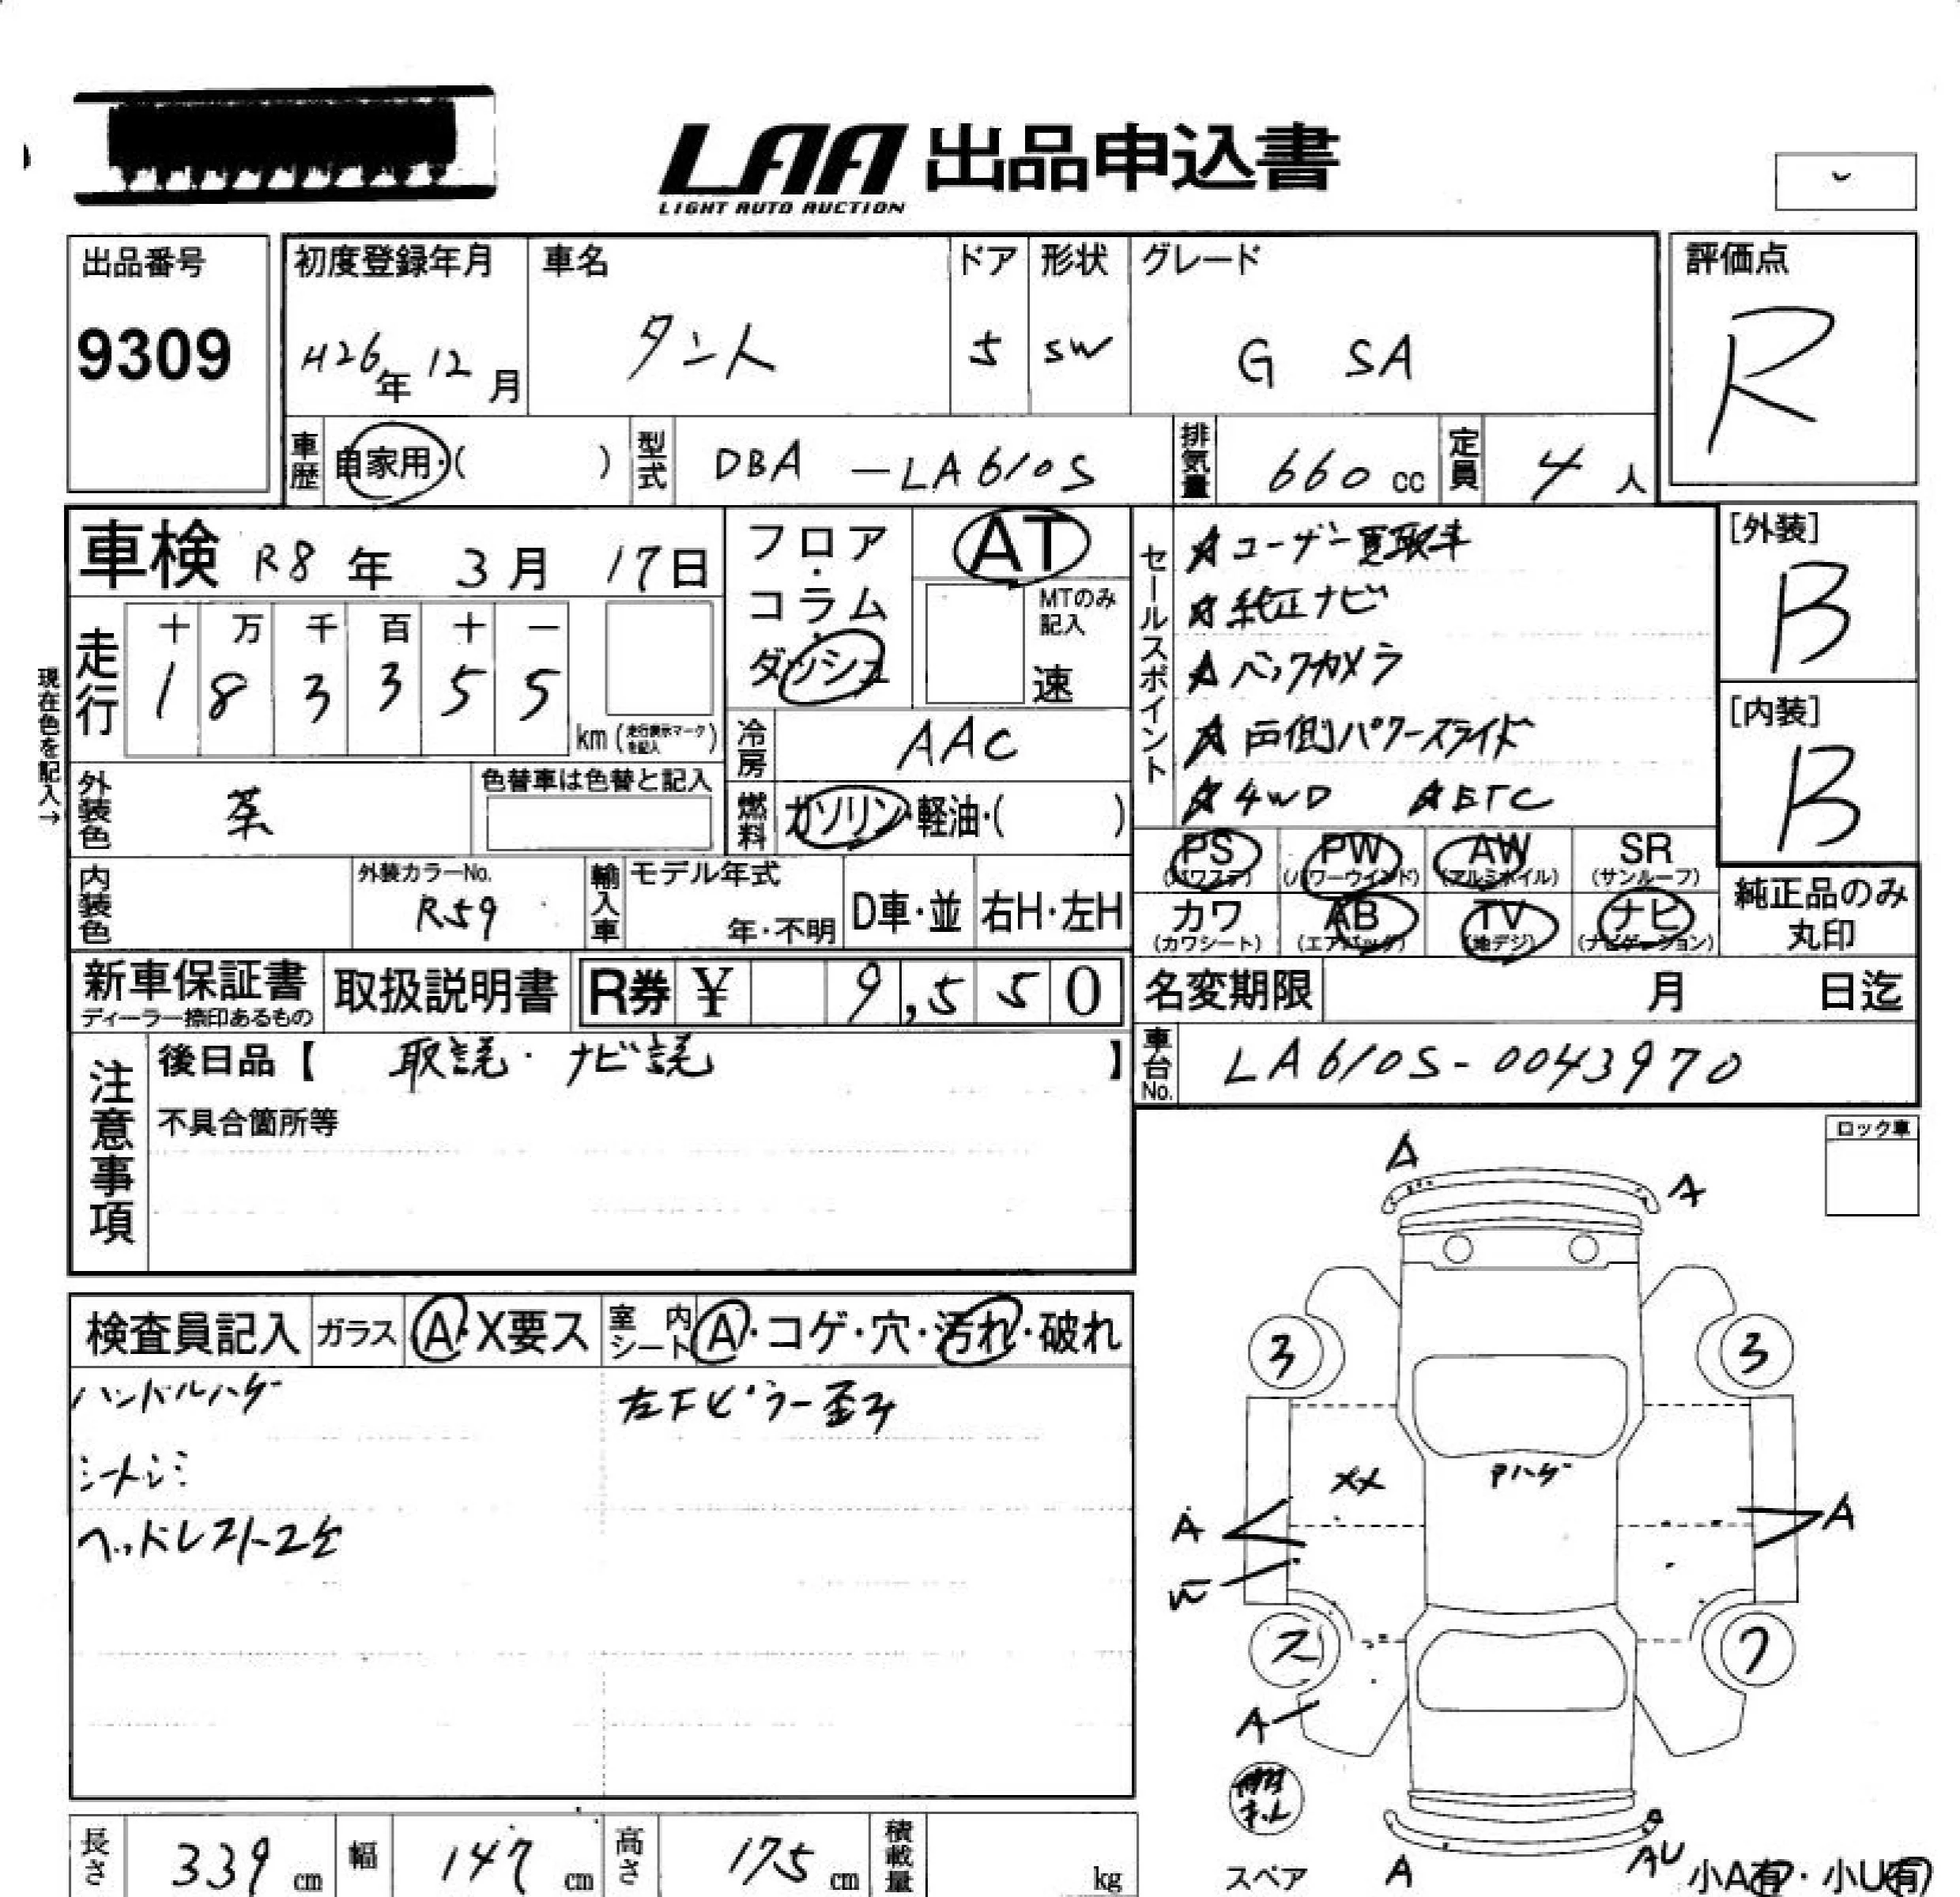 LAA 出品申込書
LIGHT AUTO AUCTION
出品番号
9309
初度登録年月
H26年 12月
車名
タント
ドア
5
形状
SW
グレード
G SA
評価点
R
車歴 自家用・( )
型式 DBA -LA610S
排気量 660 cc
定員 4人
車検 R8年 3月 17日
フロア・コラム・ダッシュ
AT
MTのみ記入
速
セールスポイント
☆ユーザー買取車
☆純正ナビ
☆バックカメラ
☆両側パワースライド
☆4WD ☆ETC
[外装]
B
[内装]
B
現在色を記入→
走行
十 万 千 百 十 一
1 8 3 3 5 5
km (走行表示マークを記入)
冷房 AAC
外装色 茶
色替車は色替と記入
燃料 ガソリン・軽油・( )
内装色
外装カラーNo.
R59
輸入車
モデル年式
年・不明
D車・並
右H・左H
PS (パワステ)
PW (パワーウインド)
AW (アルミホイル)
SR (サンルーフ)
カワ (カワシート)
AB (エアバッグ)
TV (地デジ)
ナビ (ナビゲーション)
純正品のみ丸印
新車保証書
ディーラー捺印あるもの
取扱説明書
R券 ¥ 9,550
名変期限 月 日迄
注意事項
後日品【 取説・ナビ説 】
不具合箇所等
車台No. LA610S-0043970
ロック車
検査員記入
ガラス A・X要ス
室内シート A・コゲ・穴・汚れ・破れ
ハンドルハゲ
シートシミ
ヘッドレスト2欠
左下ピラー歪み
A
A
3
3
XX
Pハゲ
A
A
W
ス
フ
A
スペア
A
AU
小A有・小U有
長さ 339 cm
幅 147 cm
高さ 175 cm
積載量 kg